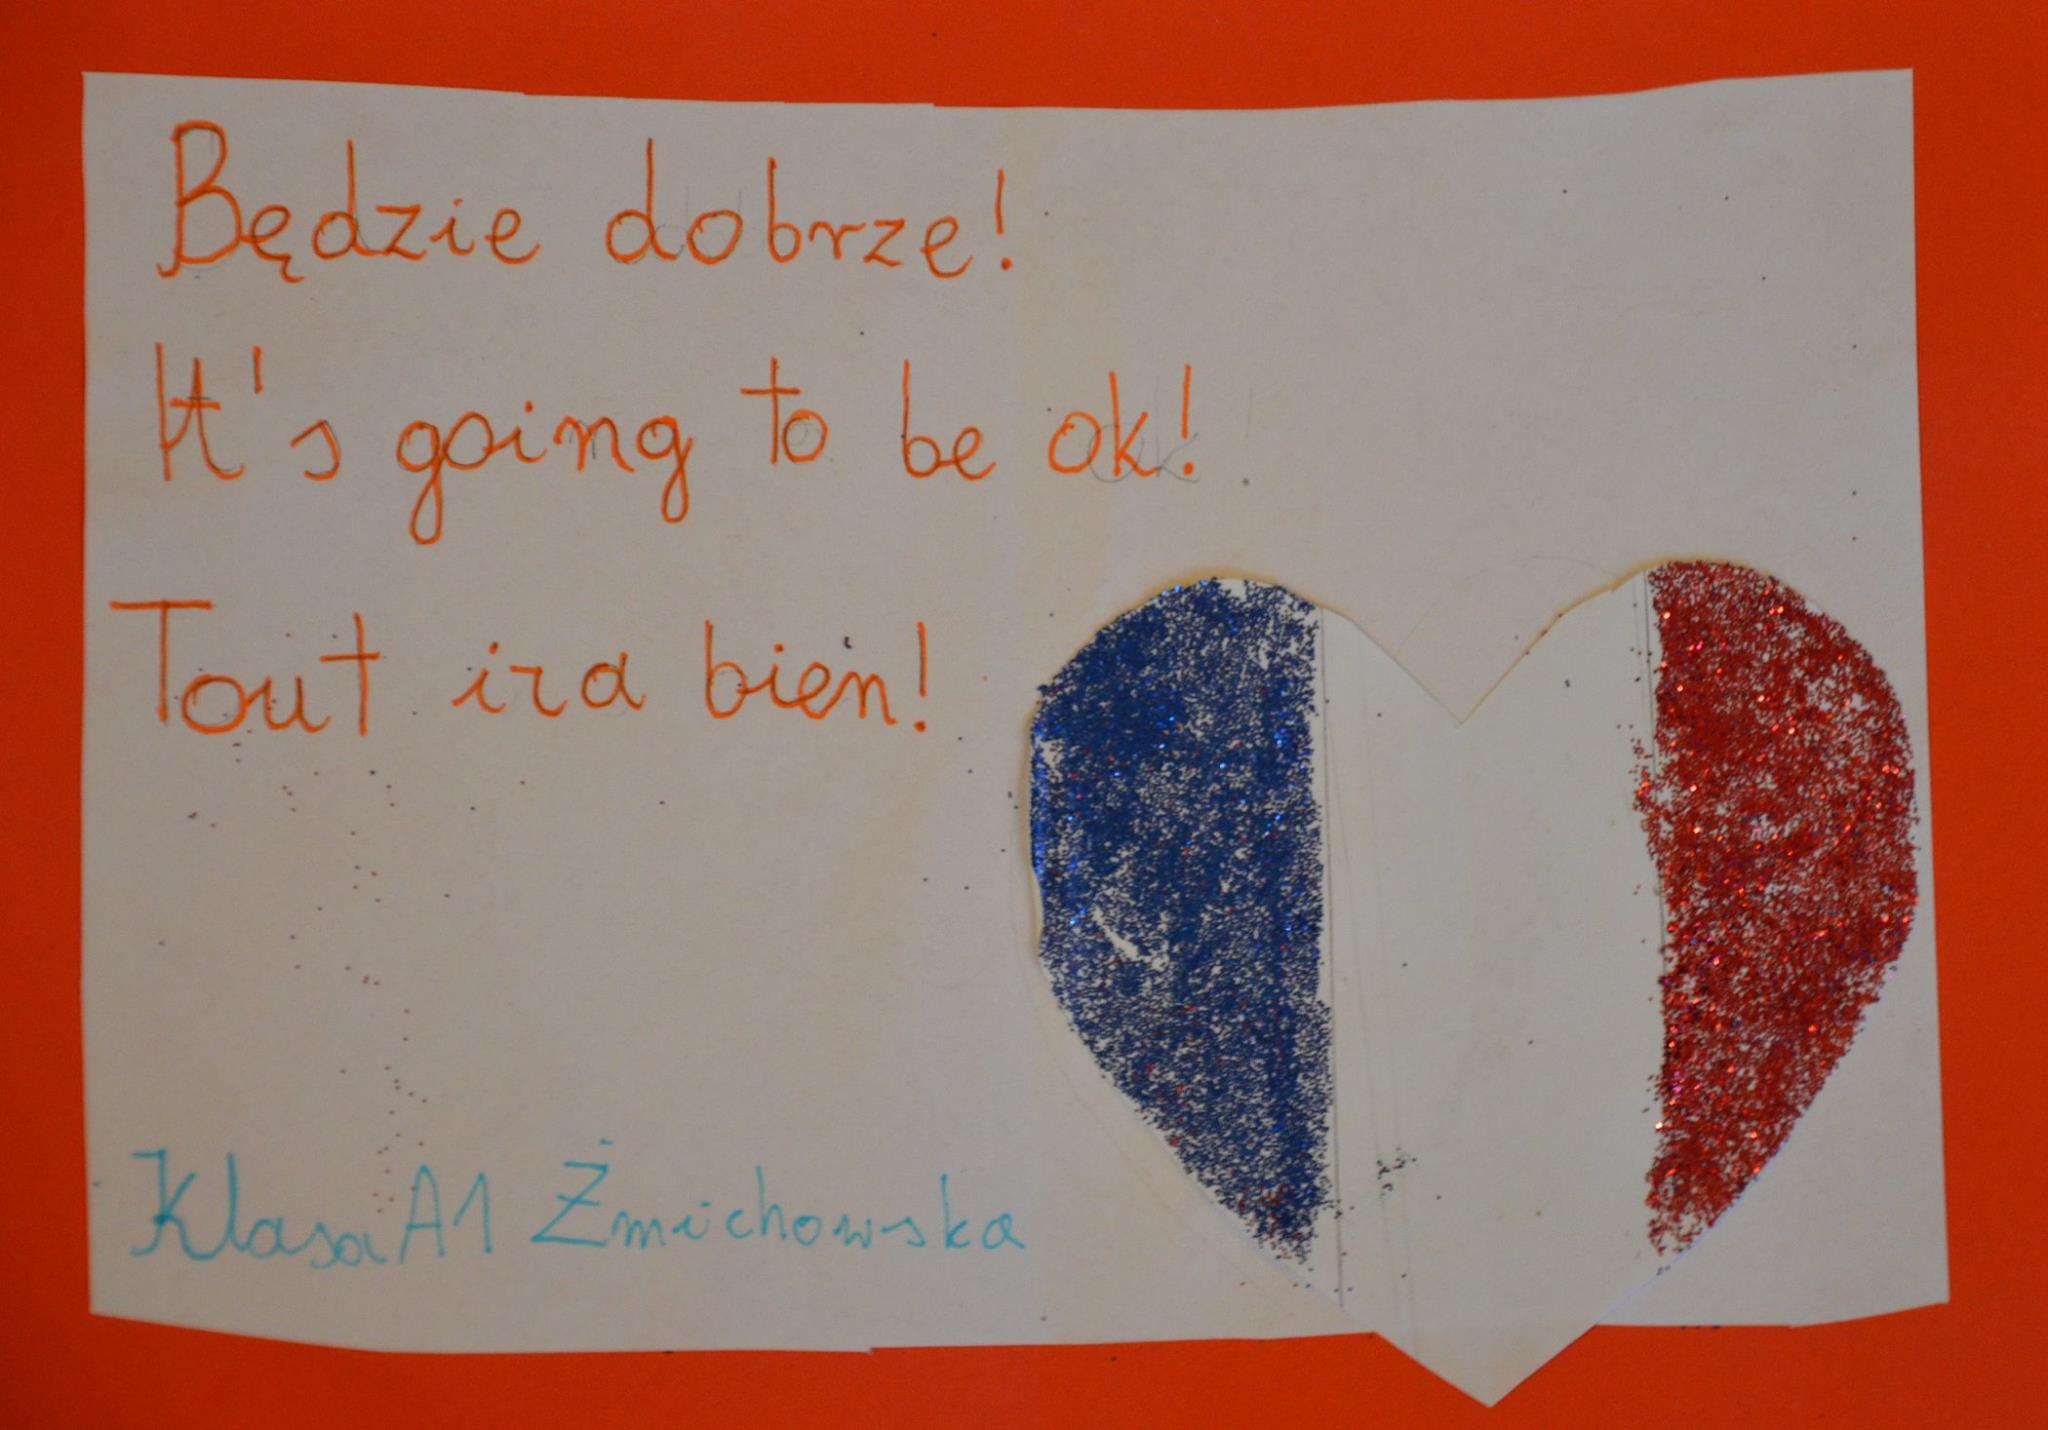 Będzie dobrze!
It's going to be ok!
Tout ira bien!
Klasa A1 Żmichowska